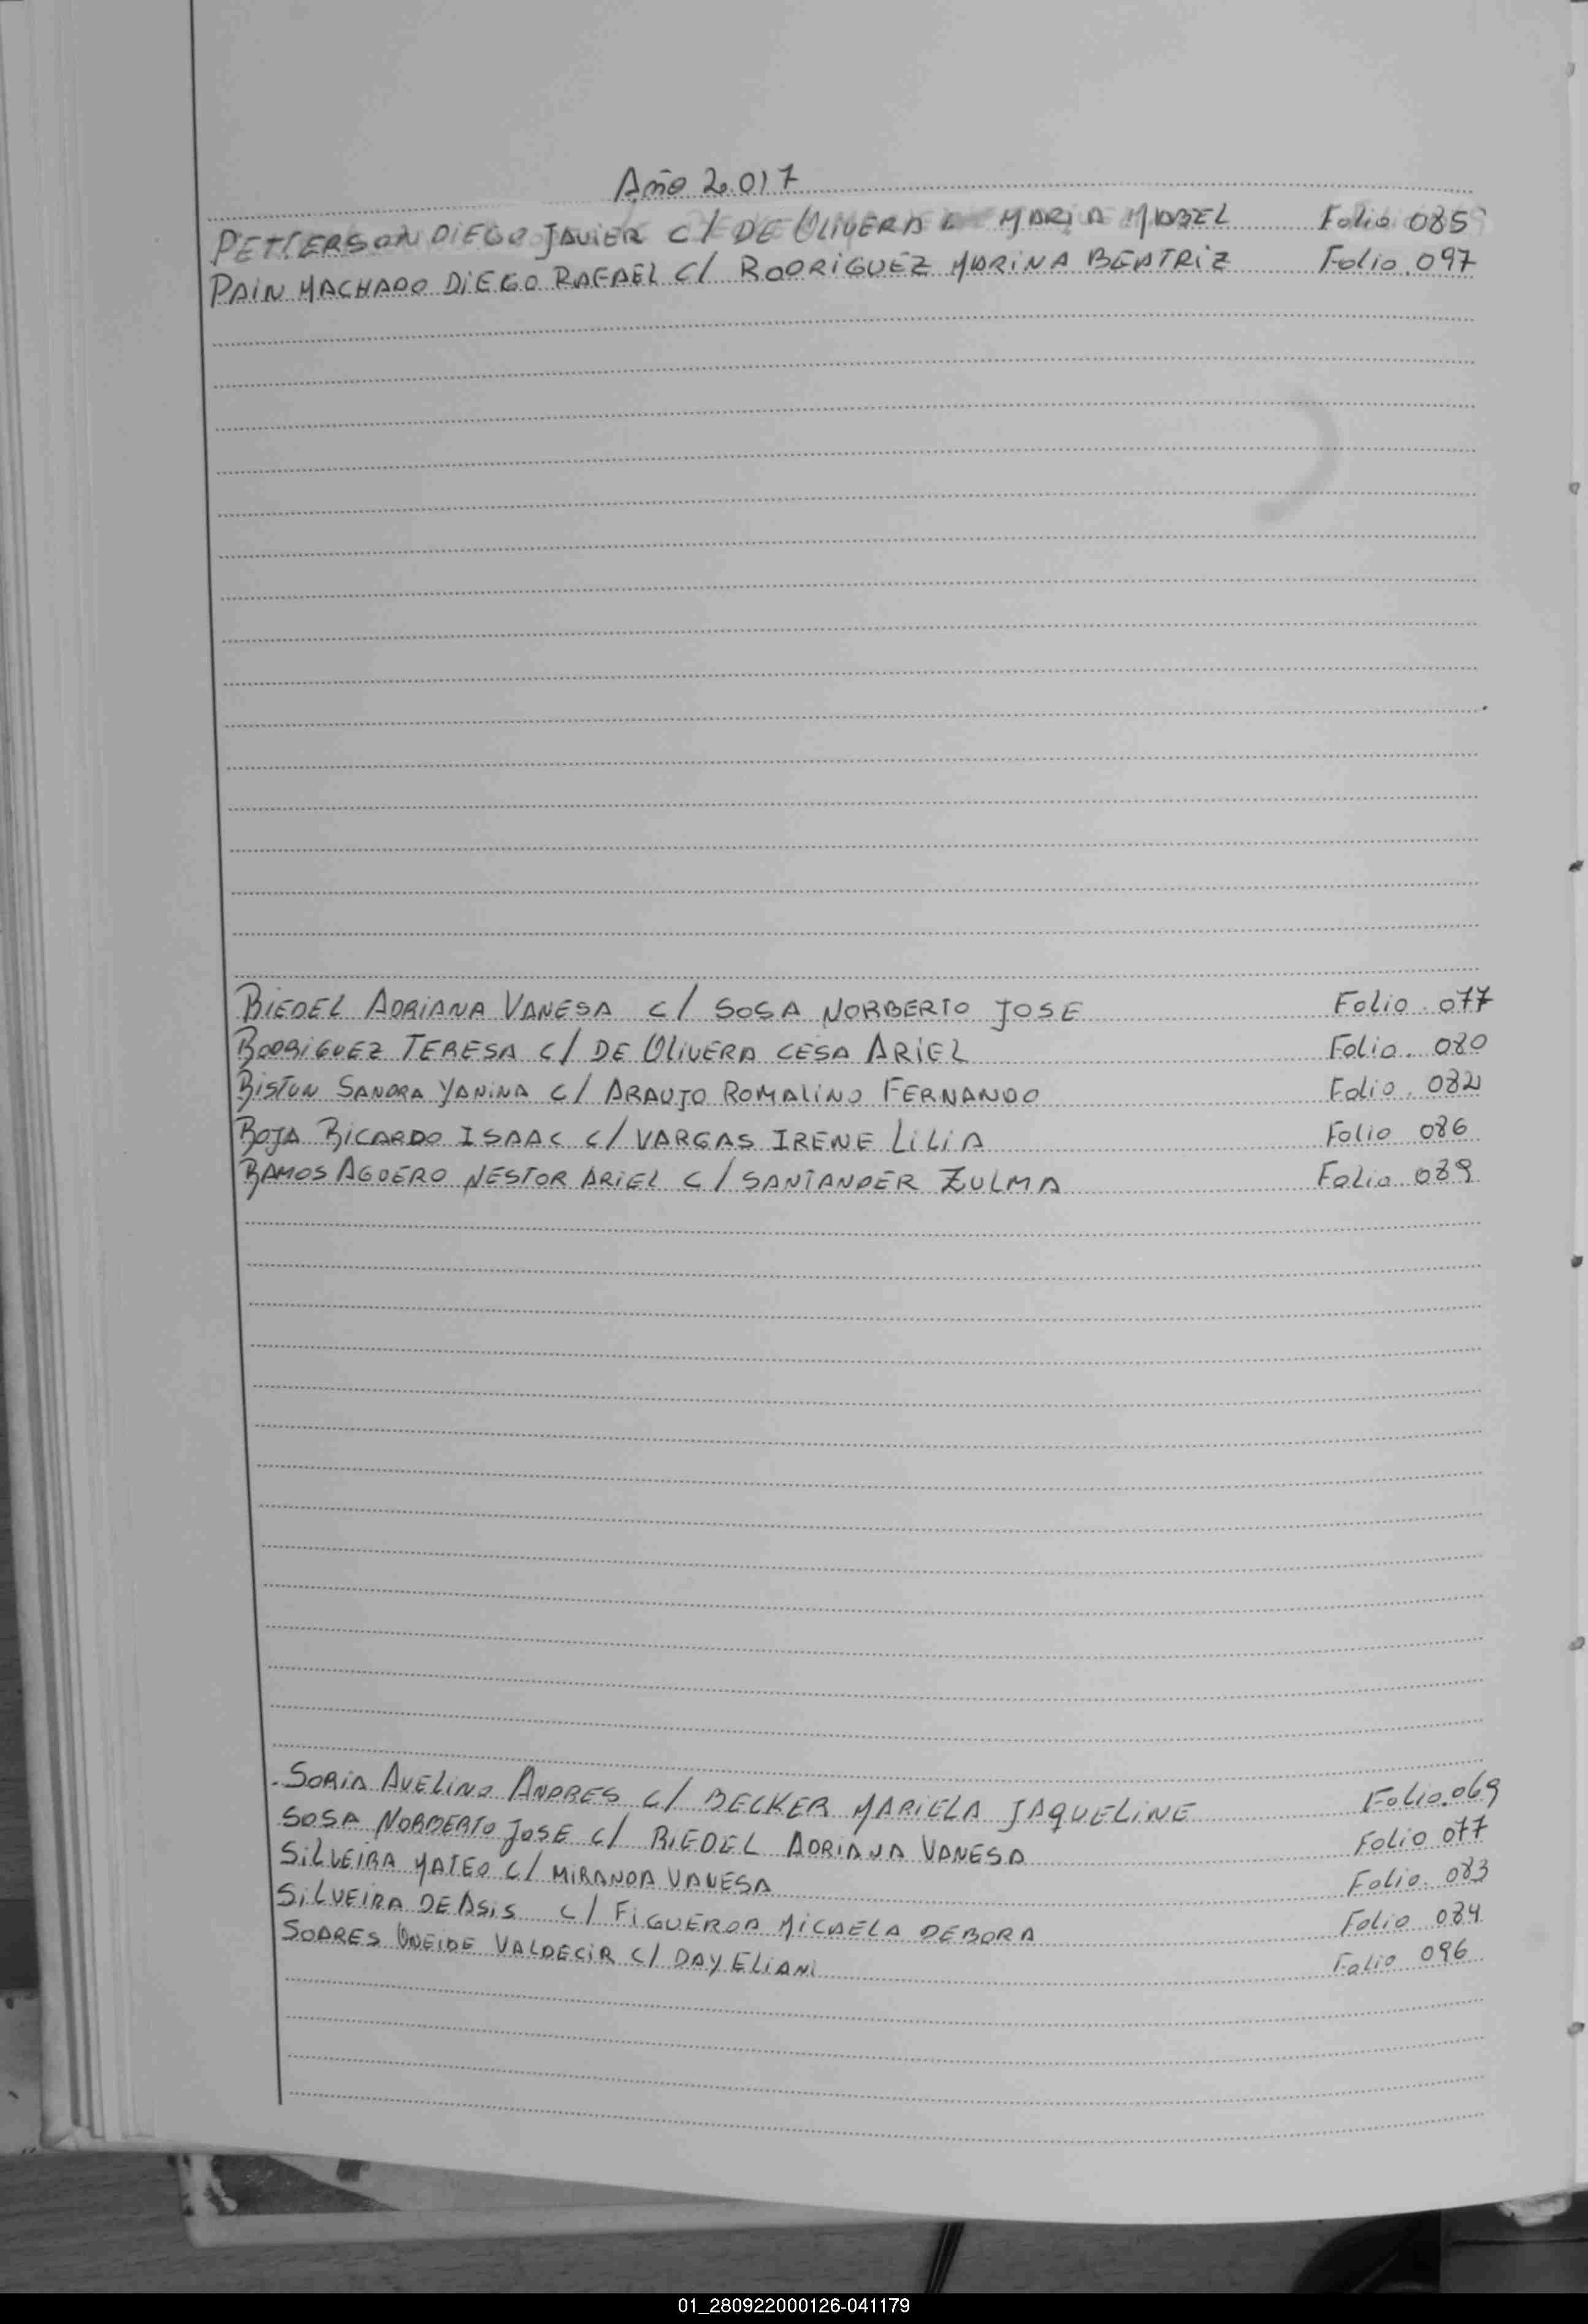 Año 2.017
PETTERSON DIEGO JAVIER C/ DE OLIVERA MARIA MABEL Folio 085
PAIN MACHADO DIEGO RAFAEL C/ RODRIGUEZ MARINA BEATRIZ Folio 097
RIEDEL ADRIANA VANESA C/ SOSA NORBERTO JOSE Folio 077
RODRIGUEZ TERESA C/ DE OLIVERA CESA ARIEL Folio 080
RISTUN SANDRA YANINA C/ ARAUJO ROMALINO FERNANDO Folio 082
ROJA RICARDO ISAAC C/ VARGAS IRENE LILIA Folio 086
RAMOS AGUERO NESTOR ARIEL C/ SANTANDER ZULMA Folio 089
SORIA AVELINO ANDRES C/ BECKER MARIELA JAQUELINE Folio 069
SOSA NORBERTO JOSE C/ RIEDEL ADRIANA VANESA Folio 077
SILVEIRA MATEO C/ MIRANDA VANESA Folio 083
SILVEIRA DE ASIS C/ FIGUEROA MICAELA DEBORA Folio 084
SOARES ONEIDE VALDECIR C/ DAY ELIANI Folio 096
01_280922000126-041179